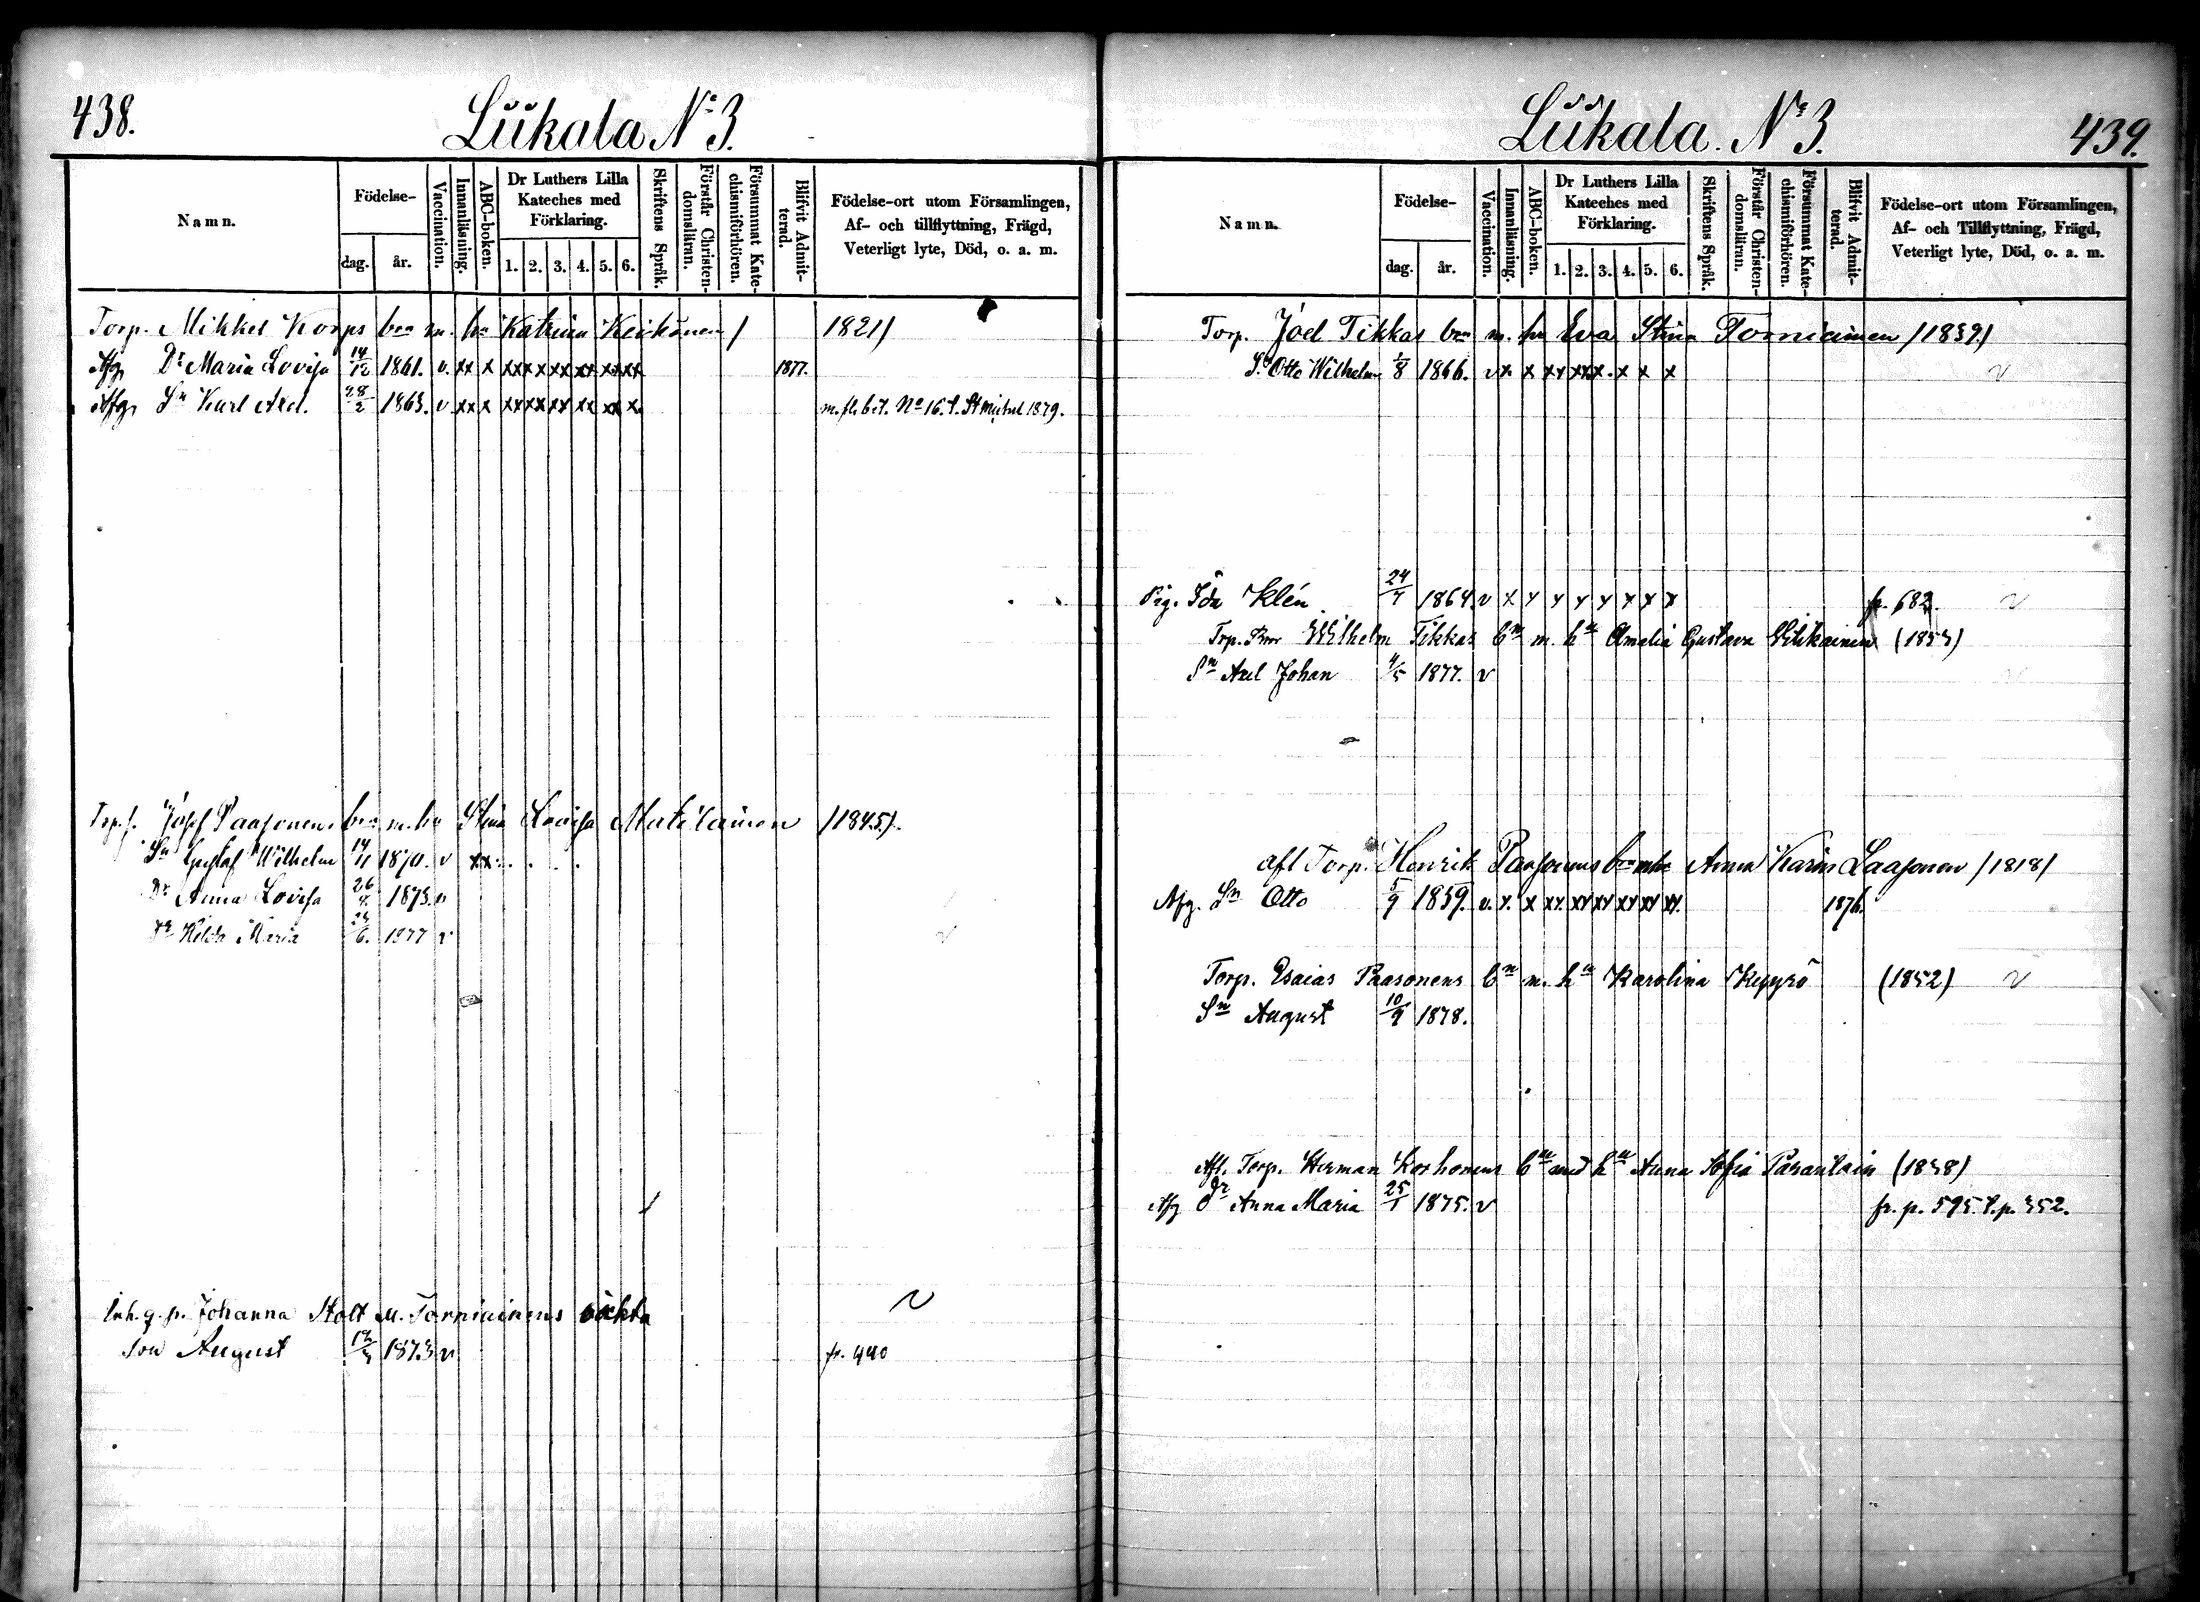 438.
Liikala Nº 3.
Namn.
Födelse-
dag.
år.
Vaccination.
Innanläsning.
ABC-boken.
Dr Luthers Lilla
Kateches med
Förklaring.
1. 2. 3. 4. 5. 6.
Skriftens Språk.
Förstår Christen-
domsläran.
Försummat Kate-
chismiförhören.
Blifvit Admit-
terad.
Födelse-ort utom Församlingen,
Af- och tillflyttning, Frägd,
Veterligt lyte, Död, o. a. m.
Torp. Mikkel Korps bn m. hu Katrina /1821/
Afg. Dr Maria Lovisa 14/12 1861. v. xx x xx x xx xx xx xx 1877.
Afg. Sn Karl Axel. 28/2 1863. v xx x xx xx xx xx xx x. Nº 16. t. St Michel 1879.
Josef Paasonens bn m. hu Stina Lovisa Matilainen /1845/.
Sn Gustaf Wilhelm 14/11 1870. v xx
Dr Anna Lovisa 26/4. 1873. v
Dr Hilda Maria 1877 v
Inh. q. p. Johanna Stolt M. Torniainens
Son August 1873 v fr. 440
Liikala. Nº 3.
439.
Namn.
Födelse-
dag.
år.
Vaccination.
Innanläsning.
ABC-boken.
Dr Luthers Lilla
Kateches med
Förklaring.
1. 2. 3. 4. 5. 6.
Skriftens Språk.
Förstår Christen-
domsläran.
Försummat Kate-
chismiförhören.
Blifvit Admit-
terad.
Födelse-ort utom Församlingen,
Af- och Tillflyttning, Frägd,
Veterligt lyte, Död, o. a. m.
Torp. Joel Tikkas bn m. hu Eva Stina Torniainen /1839/
Sn Otto Wilhelm 1/8 1866. v x. x xx xx x. x x x v
Pig. Ida Klén 24/7 1864. v x x x x x x x x fr. 682. v
Trp. Bror Wilhelm Tikkas bn m. hu Amalia Gustava
Sn Axel Johan 4/5 1877. v
Afl Torp. Henrik Paasonens bn m hu Anna Karin Laasonen /1818/
Afg. Sn Otto 5/9 1859. v. x. x xx. xx xx xx xx xx. 1876.
Torp. Esaias Paasonens bn m. hu Karolina Kepyrö (1852) v
Sn August 10/9 1878.
Afl. Torp. Herman Korhonens bn med hu Anna Sofia (1838)
Afg Dr Anna Maria 25/1 1875. v fr. p. 595. t. p. 352.